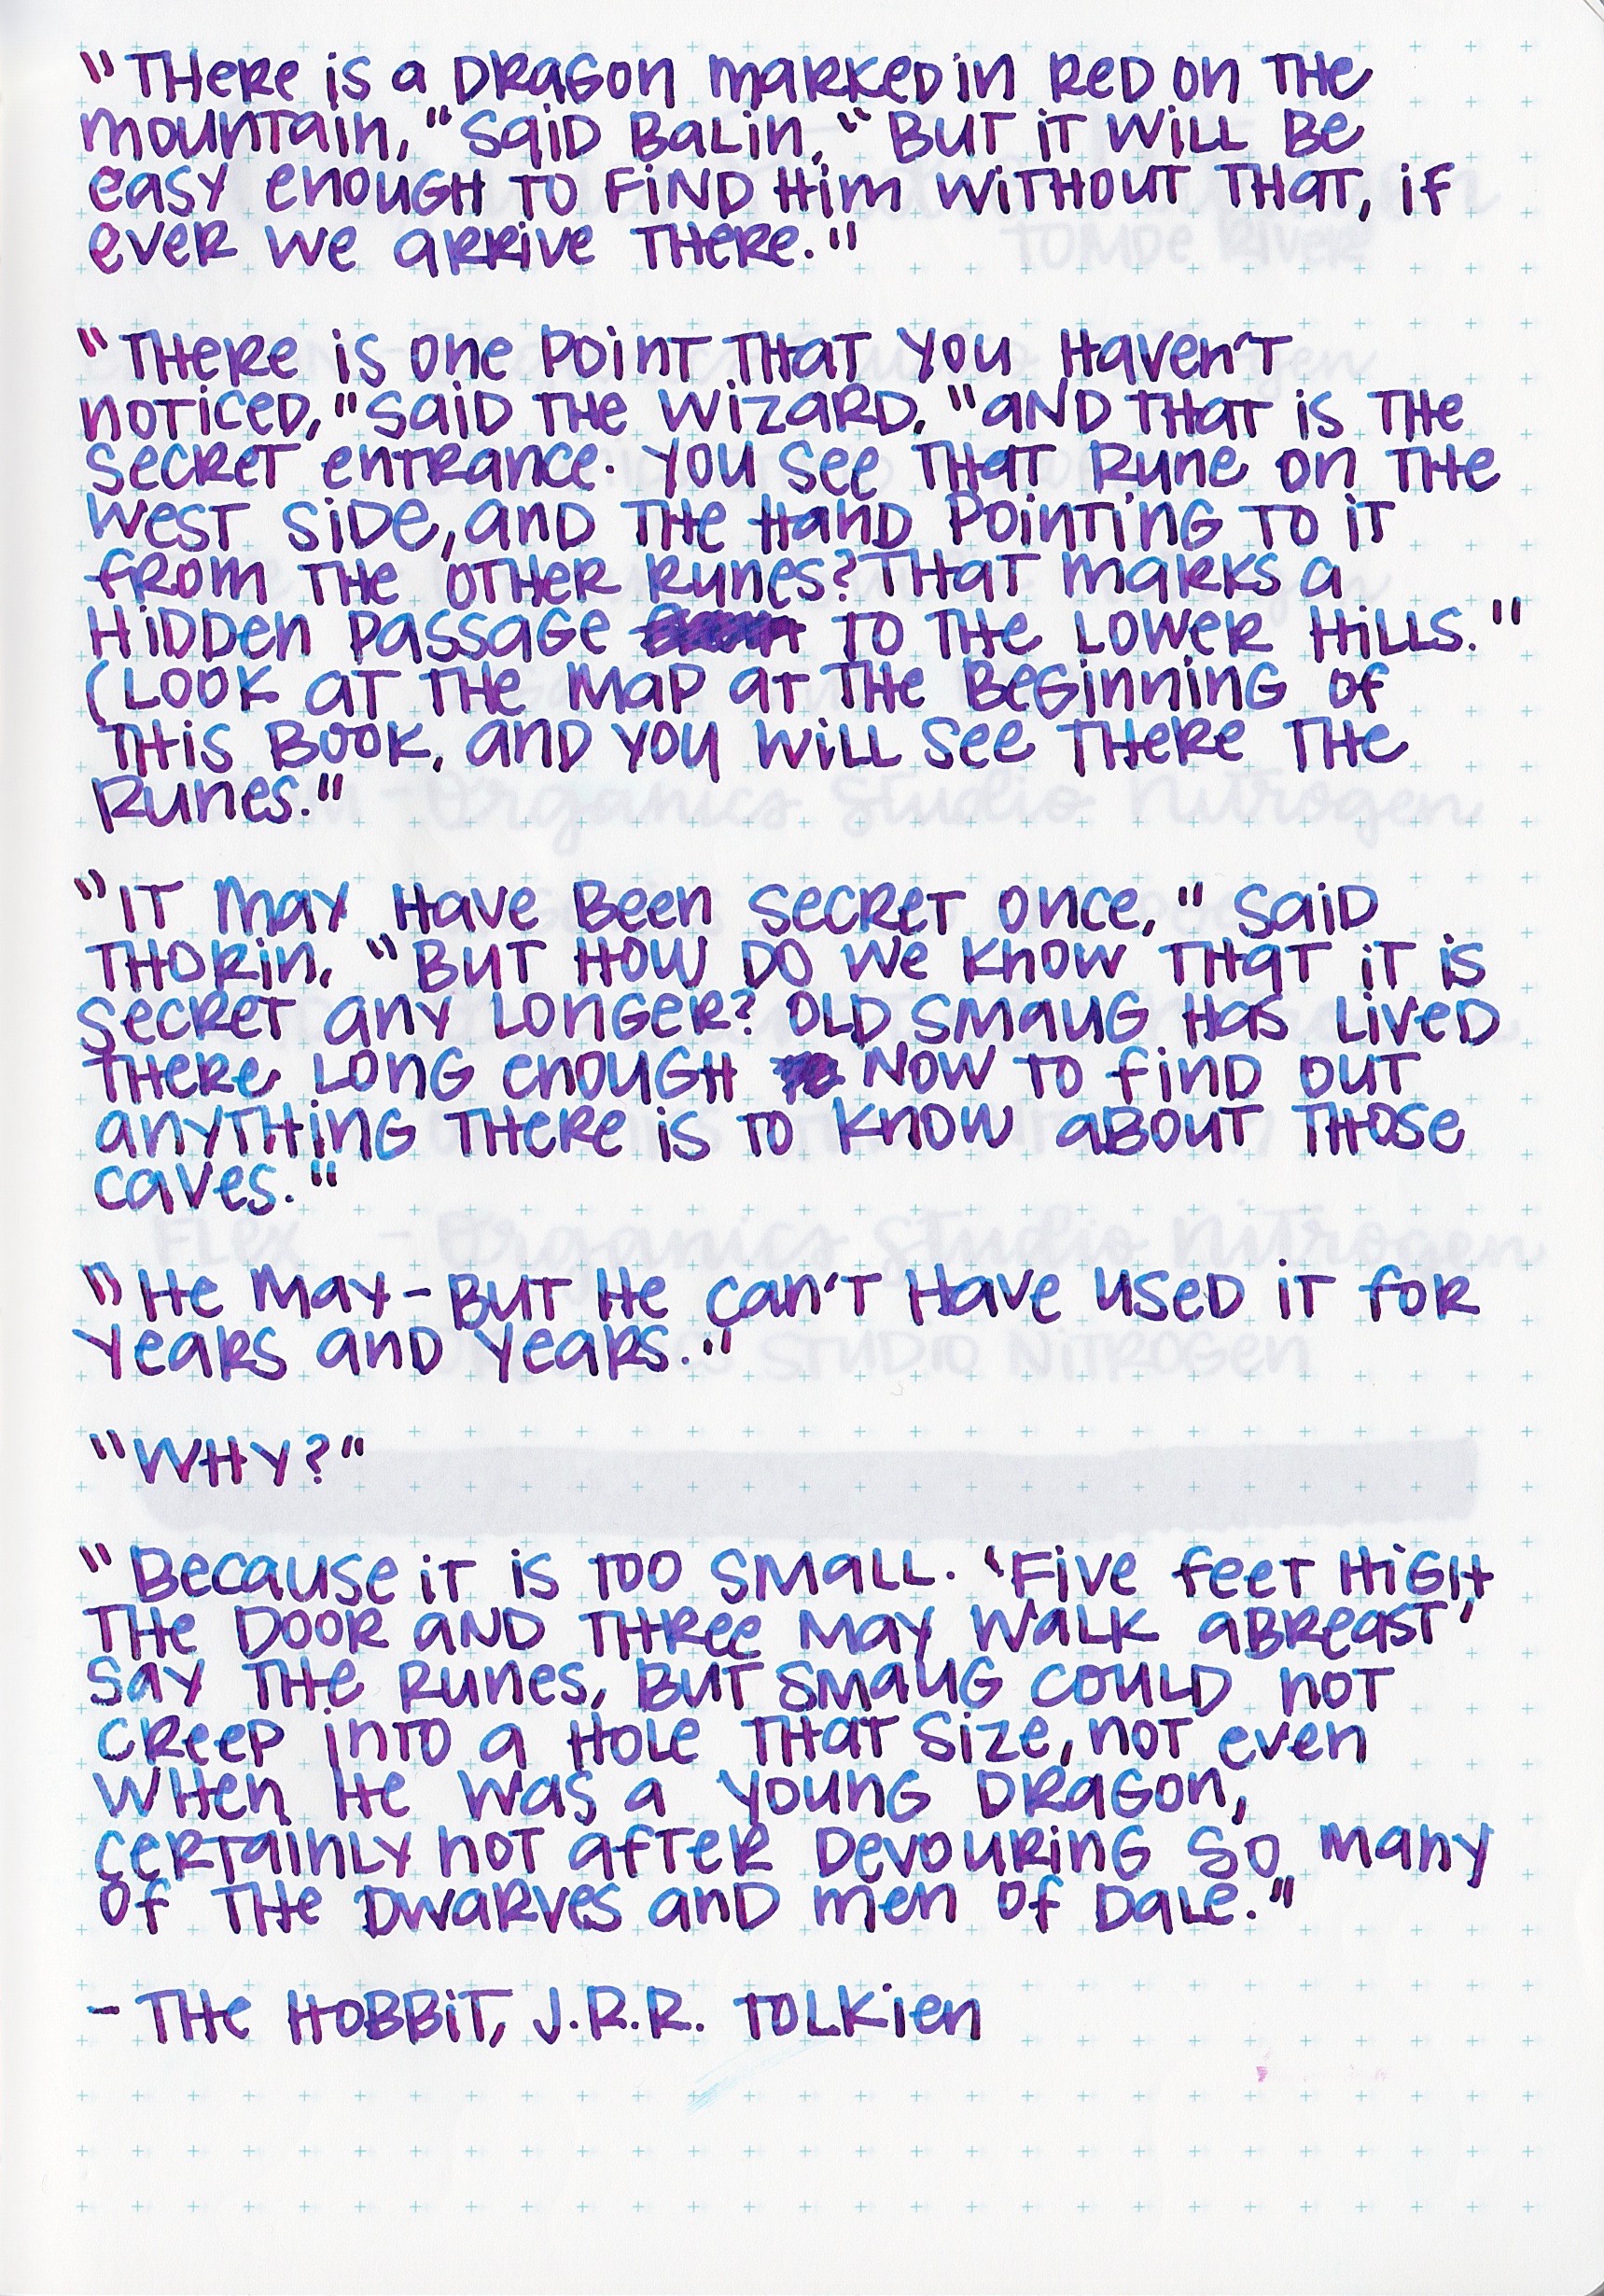 "There is a dragon marked in red on the
mountain," said Balin, "But it will be
easy enough to find him without that, if
ever we arrive there."
"There is one point that you haven't
noticed," said the wizard. "and that is the
secret entrance. You see that rune on the
West side, and the hand pointing to it
from the other runes? That marks a
hidden passage to the Lower Hills."
(Look at the map at the beginning of
this book, and you will see there the
runes."
"It may have been secret once," said
Thorin. "But how do we know that it is
secret any longer? Old Smaug has lived
there long enough now to find out
anything there is to know about those
caves."
"He may - but he can't have used it for
years and years."
"Why?"
"Because it is too small. 'Five feet high
the door and three may walk abreast'
say the runes, but Smaug could not
creep into a hole that size, not even
when he was a young dragon,
certainly not after devouring so many
of the dwarves and men of Dale."
- The Hobbit, J.R.R. Tolkien
Tomoe River
Organics Studio Nitrogen
Flex - Organics Studio Nitrogen
Studio Nitrogen